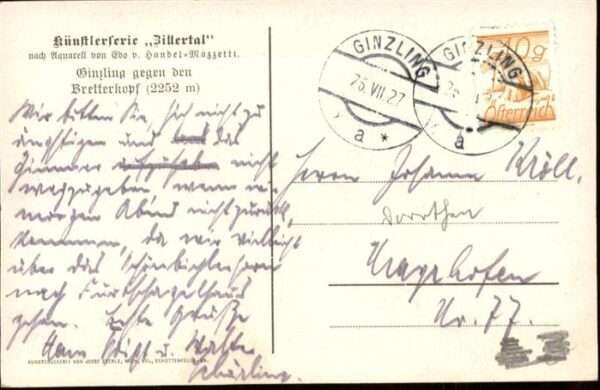 Künstlerserie „Zillertal"
nach Aquarell von Edo v. Handel-Mazzetti.
Ginzling gegen den
Bretterkopf (2252 m)
Wir bitten Sie, sich nicht zu
ängstigen und das
Zimmer nicht
wegzugeben, wenn wir
morgen Abend nicht zurück
kommen, da wir vielleicht
über das Schönbichlerhorn
nach Furtschagelhaus
gehen. Beste Grüße
u.
GINZLING
25.VII.27
a *
GINZLING
a
10g
Österreich
Herrn Johann Kröll.
Mayrhofen
Nr. 77.